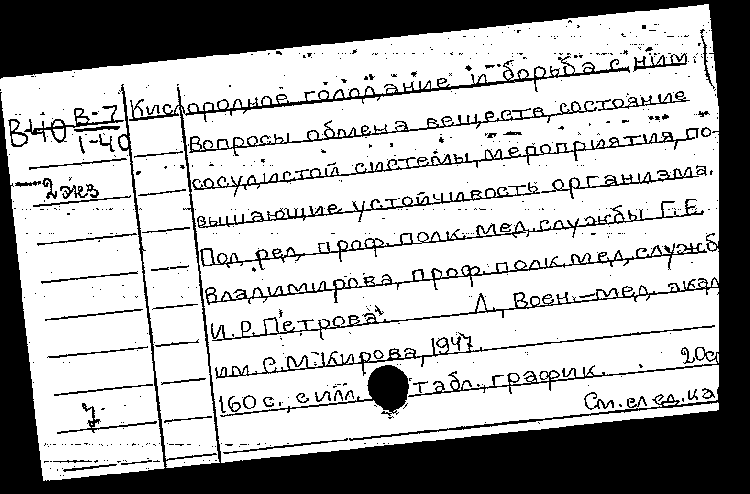 Кислородное голодание и борьба с ним
В40 В-7
1-40
Вопросы обмена веществ, состояние
2 экз
сосудистой системы, мероприятия, по-
вышающие устойчивость организма.
Под ред. проф. полк. мед. службы Г.Е.
Владимирова, проф. полк. мед. служб
И.Р. Петрова. Л., Воен.-мед. акад
им. С.М. Кирова, 1947.
160 с., с илл. табл., график. 20с
См. след. ка